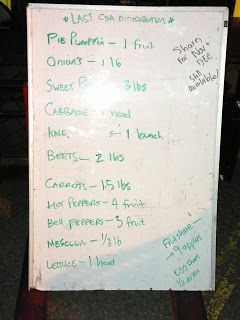 * LAST CSA DISTRIBUTION *
PIE PUMPKIN - 1 fruit
ONIONS - 1 lb
SWEET 3 lbs
CABBAGE head
KALE, - 1 bunch
BEETS - 2 lbs
CARROTS - 1.5 lbs
HOT PEPPERS - 4 fruit
BELL PEPPERS - 3 fruit
MESCLUN - 1/3 lb
LETTUCE - 1 head
Shares
For Nov -
DEC
Still
available!
Fruitshare -
9 apples
Egg Share
1/2 dozen